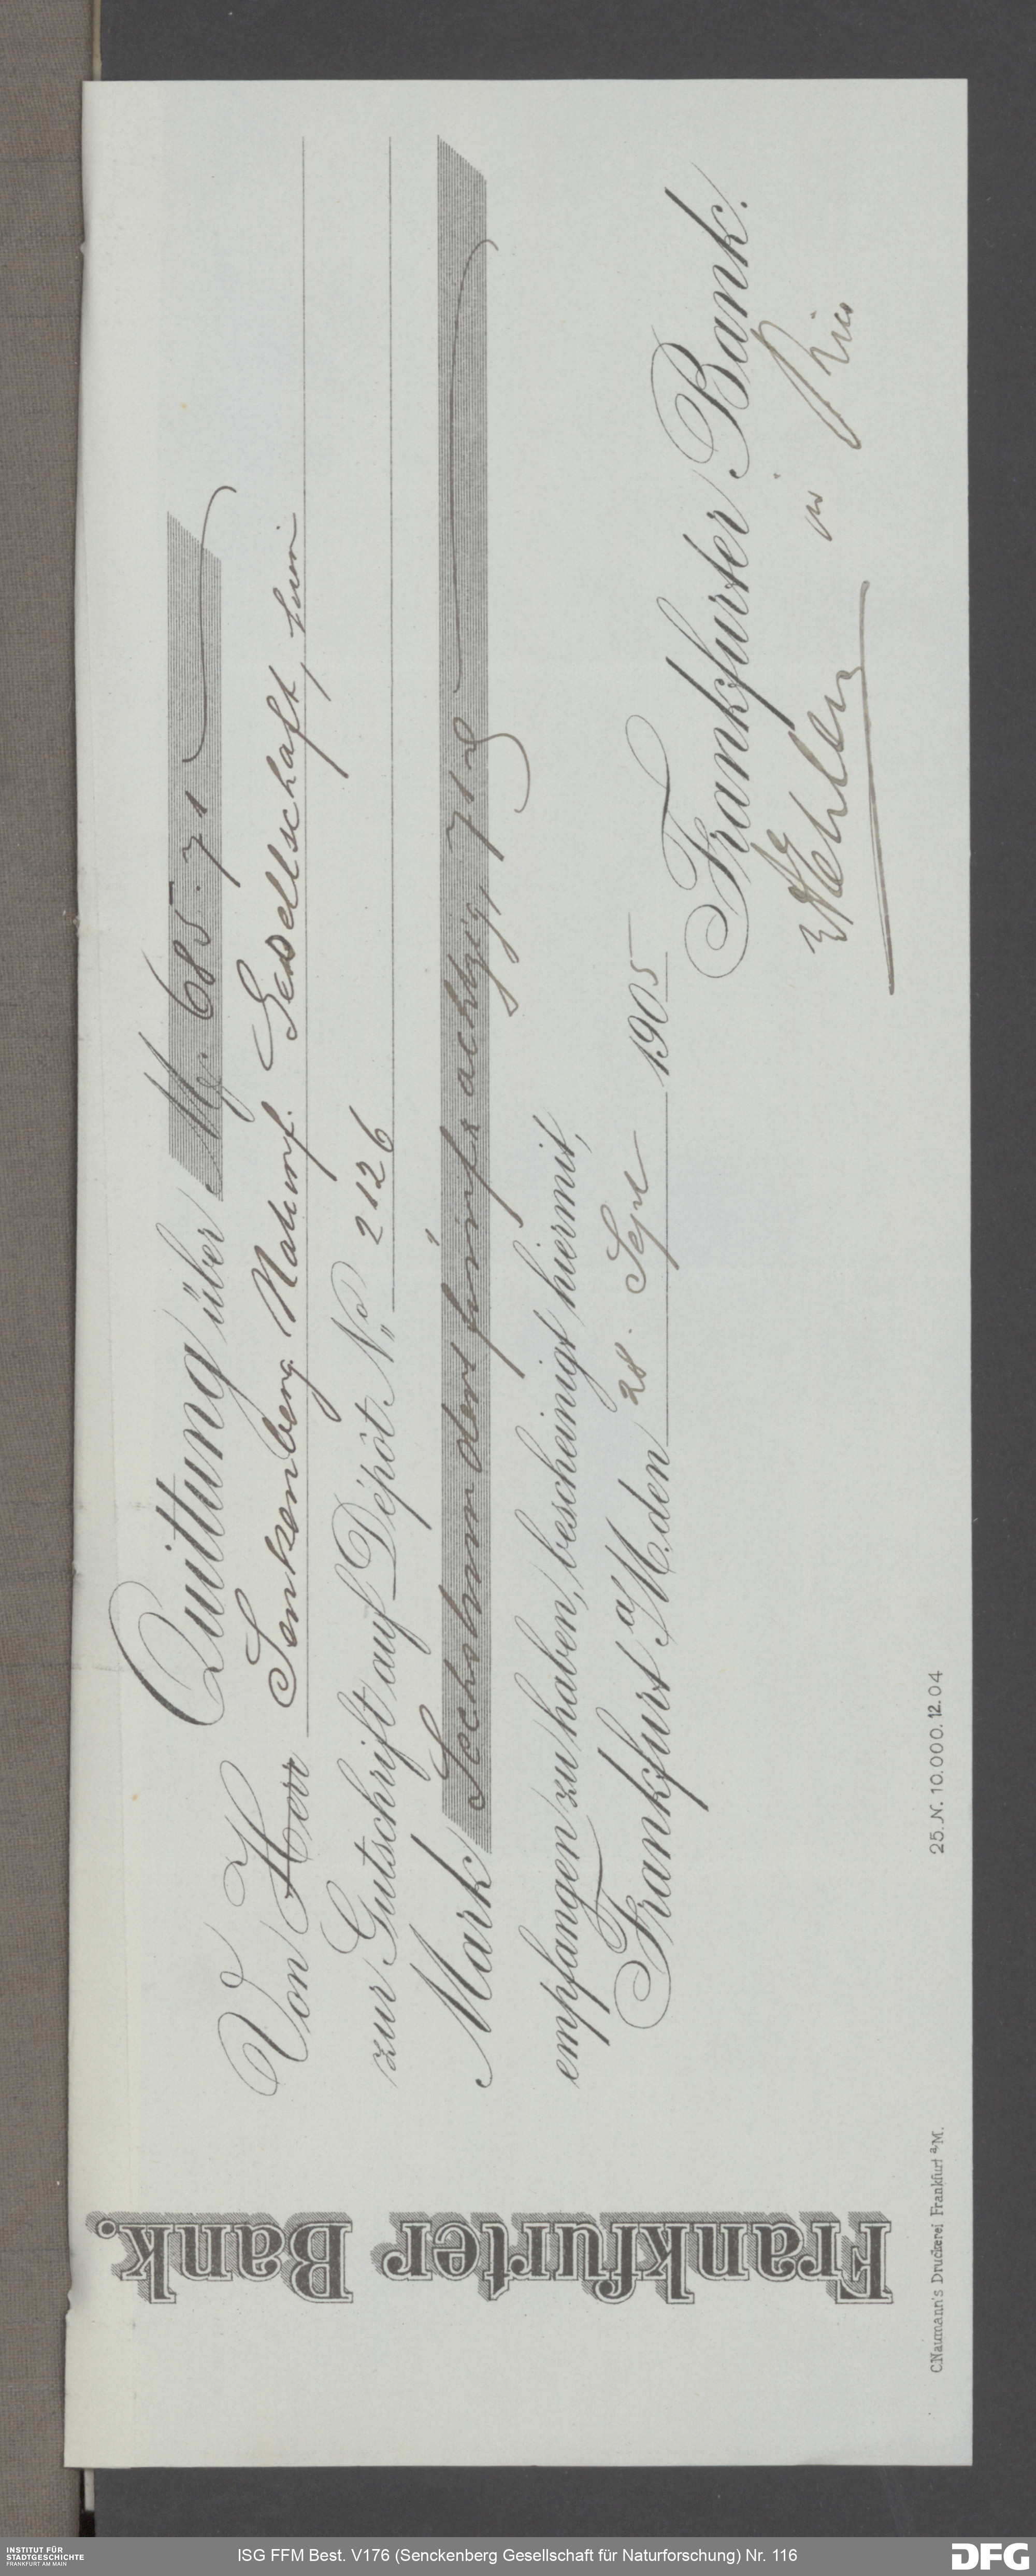 Frankfurter Bank.
Quittung über M. 685.71
Von Herr Senkenberg Naturf. Gesellschaft, hier
zur Gutschrift auf Dépôt No. 2126
Mark Sechshundert fünf & achtzig, 71 d
empfangen zu haben, bescheinigt hiermit,
Frankfurt a/M. den 28. Sept 1905
Frankfurter Bank.
25. N. 10.000. 12.04
C. Naumann's Druckerei Frankfurt a/M.
INSTITUT FÜR
STADTGESCHICHTE
FRANKFURT AM MAIN
ISG FFM Best. V176 (Senckenberg Gesellschaft für Naturforschung) Nr. 116
DFG